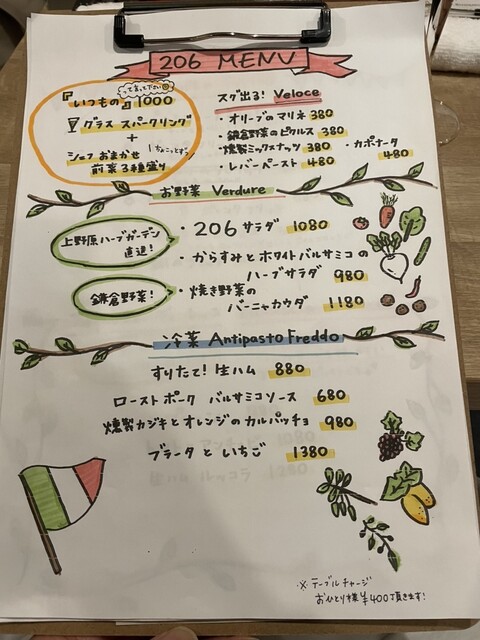 206 MENU
って言って下さい
『いつもの』1000
グラス スパークリング
+
シェフおまかせ 1ちょこっとずつ
前菜3種盛り
スグ出る! Veloce
・オリーブのマリネ 380
・鎌倉野菜のピクルス 380
・燻製ミックスナッツ 380
・カポナータ 480
・レバーペースト 480
お野菜 Verdure
上野原ハーブガーデン
直送!
・206 サラダ 1080
・からすみとホワイトバルサミコの
ハーブサラダ 980
鎌倉野菜!
・焼き野菜の
バーニャカウダ 1180
冷菜 Antipasto Freddo
すりたて!生ハム 880
ローストポーク バルサミコソース 680
燻製カジキとオレンジのカルパッチョ 980
ブラータ と いちご 1380
※テーブルチャージ
おひとり様¥400頂きます!